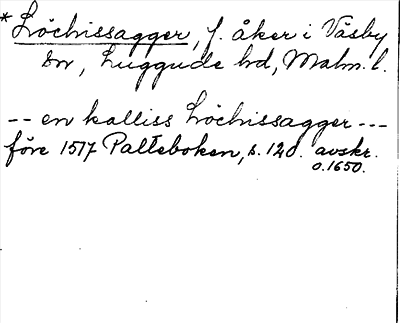 *Löchrissagger, f. åker i Väsby
sn, Luggude hd, Malm. l.
-- en kalliss Löchrissagger ---
före 1517 Palteboken, s. 120. avskr.
o. 1650.